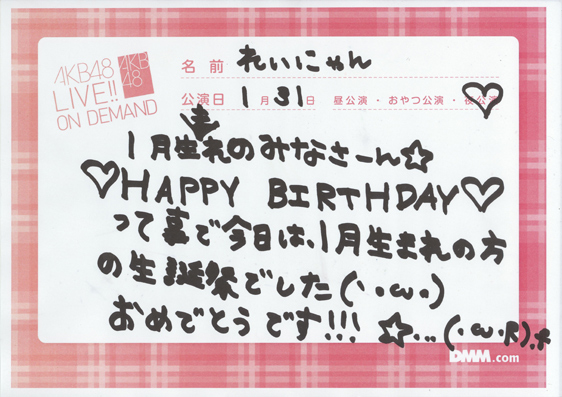 AKB48
LIVE!!
ON DEMAND
AKB
48
名前 れいにゃん
公演日 1月31日 昼公演・おやつ公演・夜公演
ま
1月生れのみなさーん☆
♡HAPPY BIRTHDAY♡
って事で今日は、1月生まれの方
の生誕祭でした(・ω・)
おめでとうです!!! ☆…(・ω・R)ﾉ
DMM.com